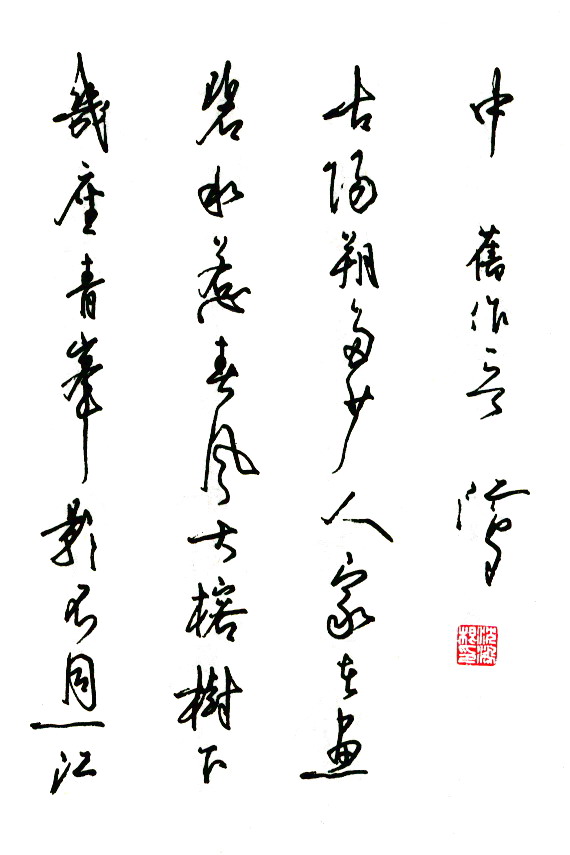 幾座青峯影不同一江
碧水惹春風大榕樹下
古陽朔多少人家在畫
中 舊作一首